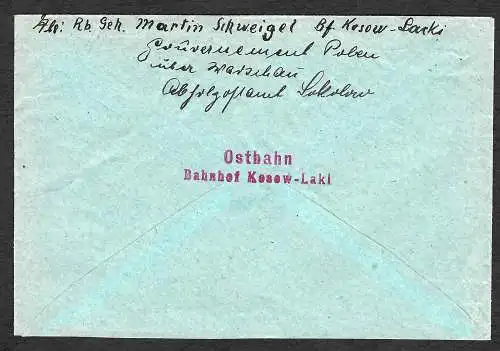 Abs: Rb. Geh. Martin Schweigel Bf Kosow-Lacki
Gouvernement Polen
über Warschau
Abholpostamt Sokolow
Ostbahn
Bahnhof Kosow-Laki